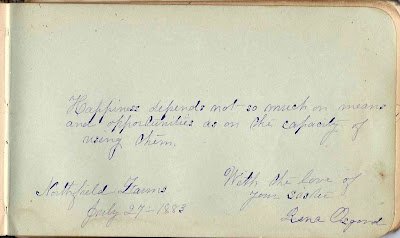 Happiness depends not so much on means
and opportunities as on the capacity of
using them.
Northfield Farms
July 27-1883
With the love of
your sister
Rena Osgood